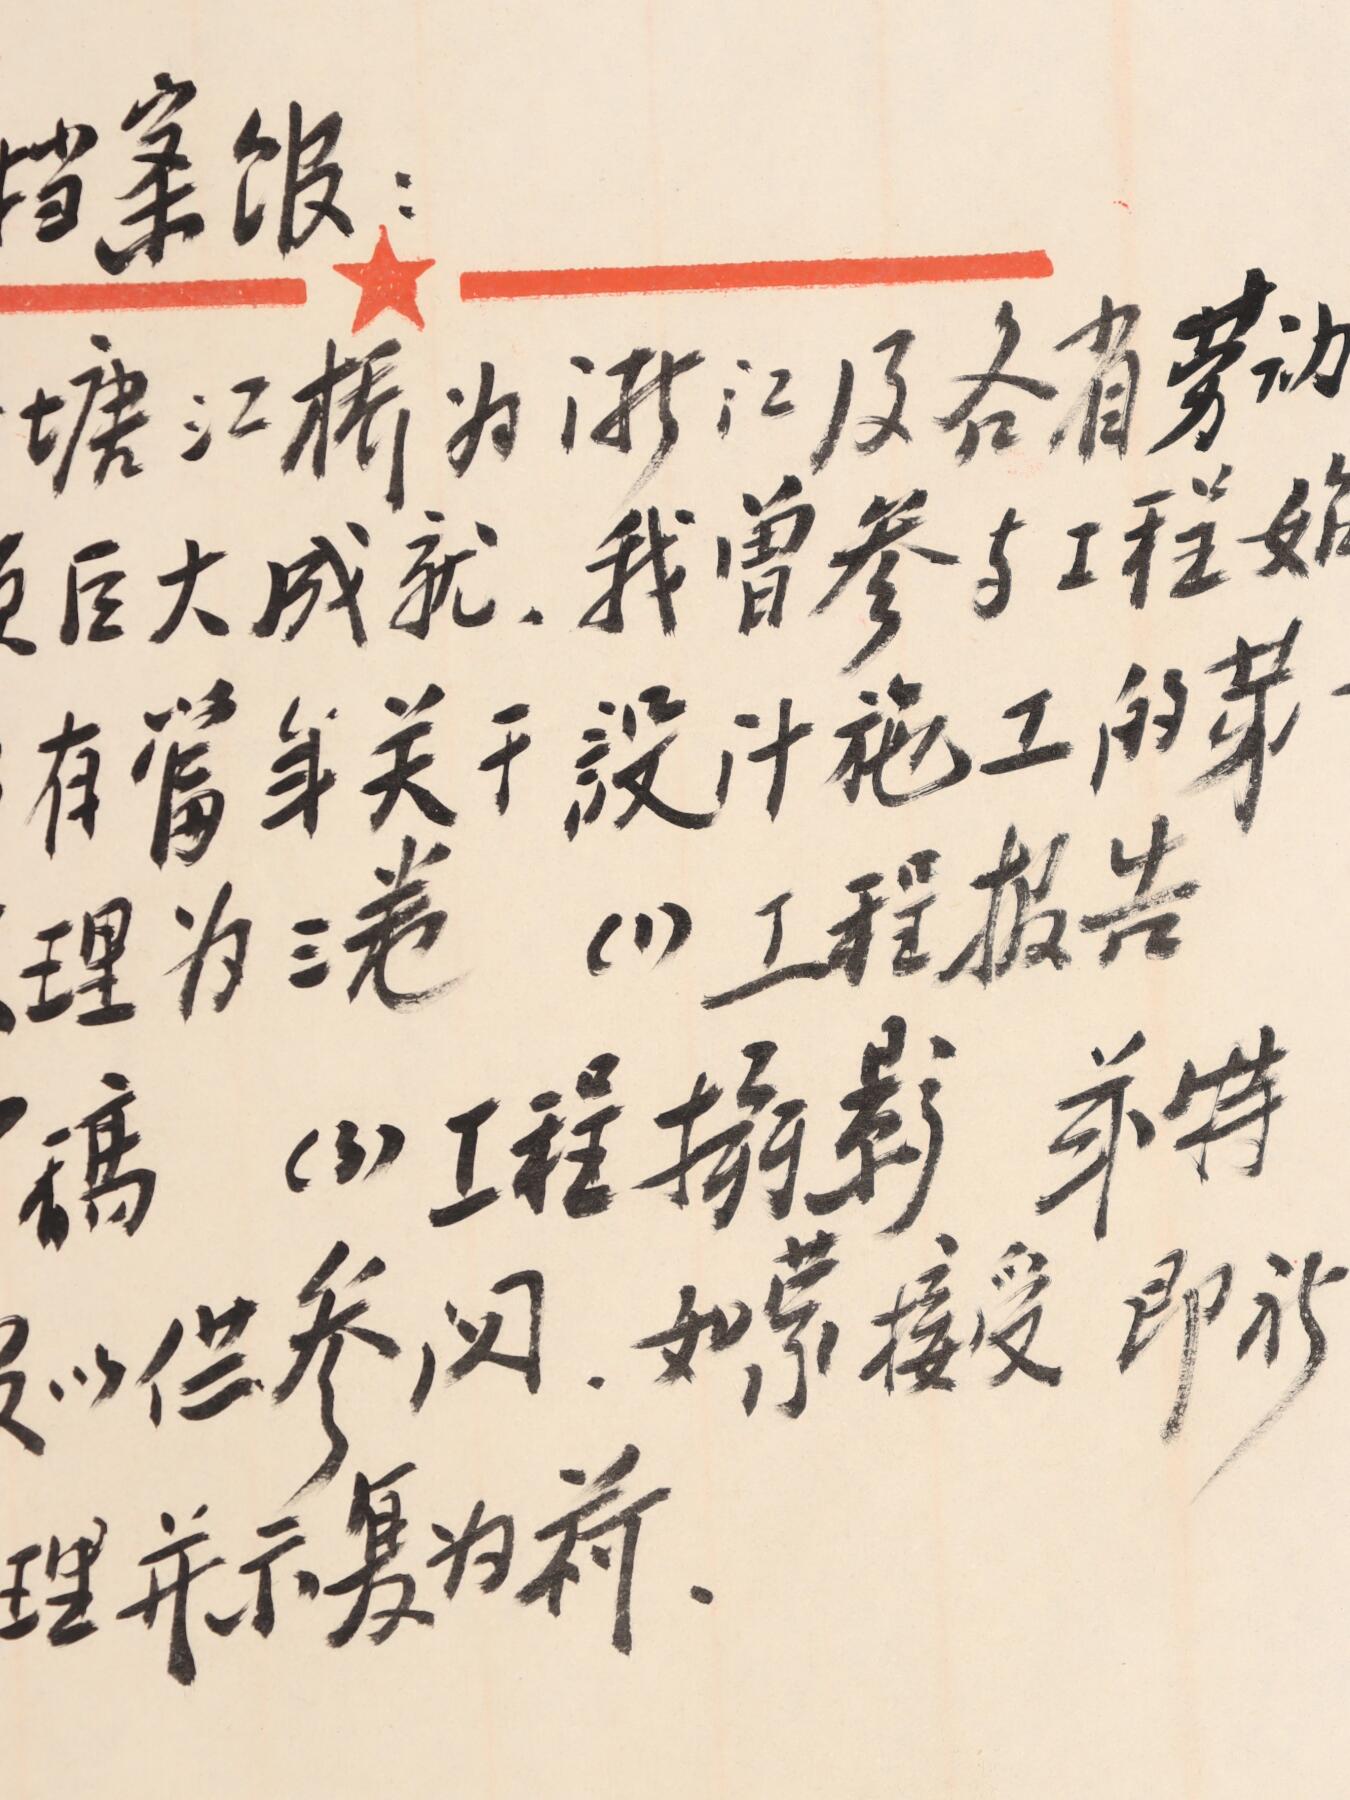 档案馆：
塘江桥为浙江及各省劳动
巨大成就．我曾参与工程始
有当年关于設计施工的第
理为三卷 (1)工程报告
稿 (3)工程摄影 兹特
以供参阅．如蒙接受 即祈
理并示复为荷．